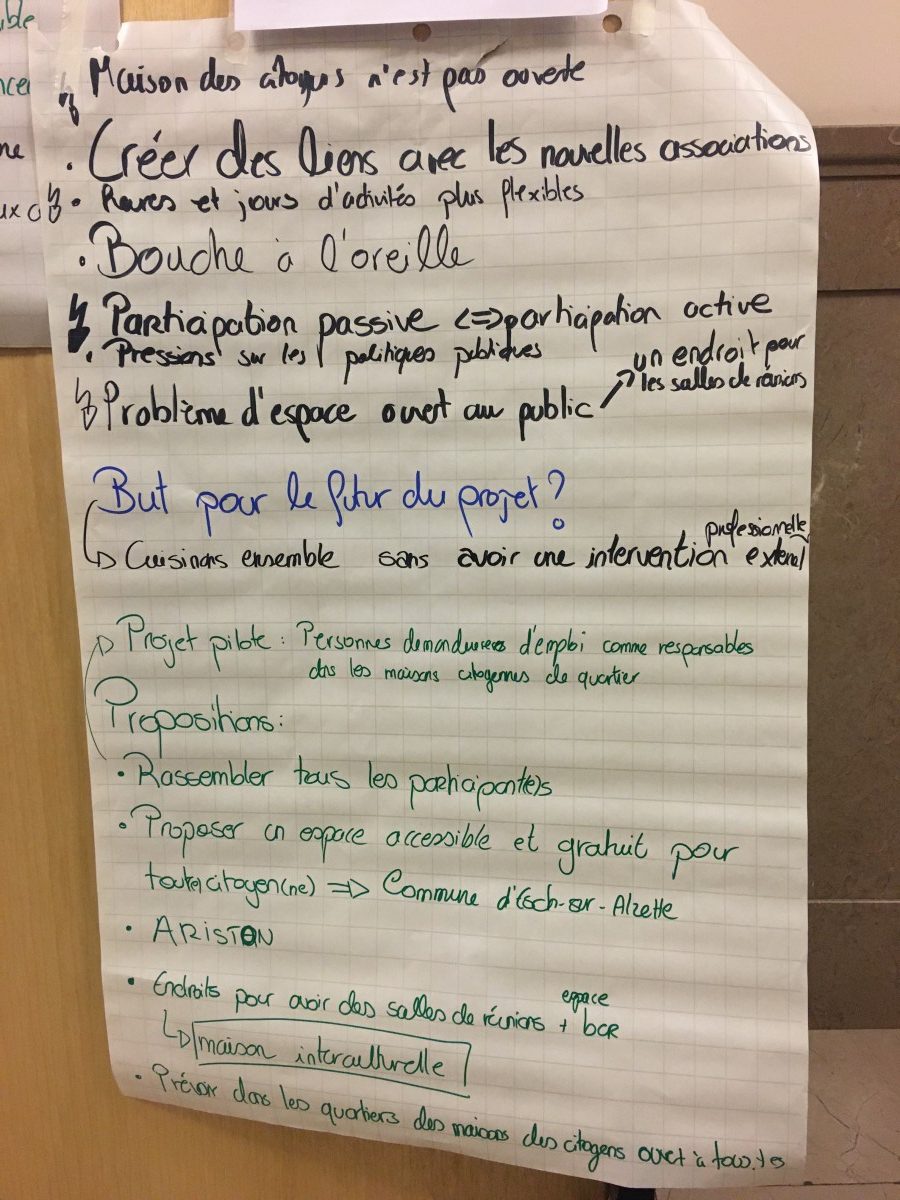 ble
Maison des citoyens n'est pas ouverte
. Créer des liens avec les nouvelles associations
• Heures et jours d'activités plus flexibles
• Bouche à l'oreille
Participation passive <=> participation active
• Pressions sur les politiques publiques
un endroit pour
les salles de réunions
Problème d'espace ouvert au public
But pour le futur du projet?
professionnelle
Cuisinons ensemble sans avoir une intervention
Projet pilote : Personnes d'emploi comme responsables
dans les maisons citoyennes de quartier
Propositions:
• Rassembler tous les participant(e)s
• Proposer un espace accessible et gratuit pour
tout(e) citoyen(ne) => Commune d'Esch-sur-Alzette
• ARISTON
espace
• Endroits pour avoir des salles de réunions + bar
maison interculturelle
• Prévoir dans les quartiers des maisons des citoyens ouvert à tous.tes